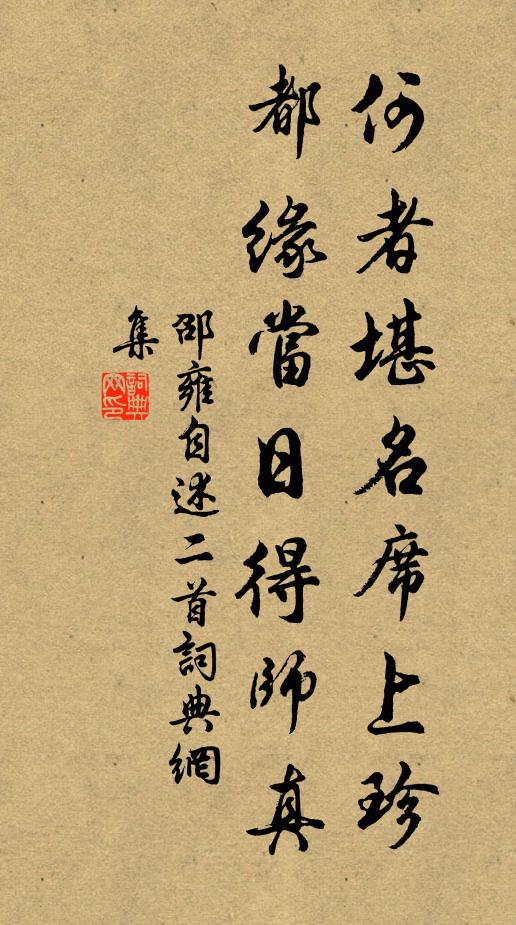 何者堪名席上珍
都緣當日得師真
邵雍自述二首詞典網
集
詞典網印